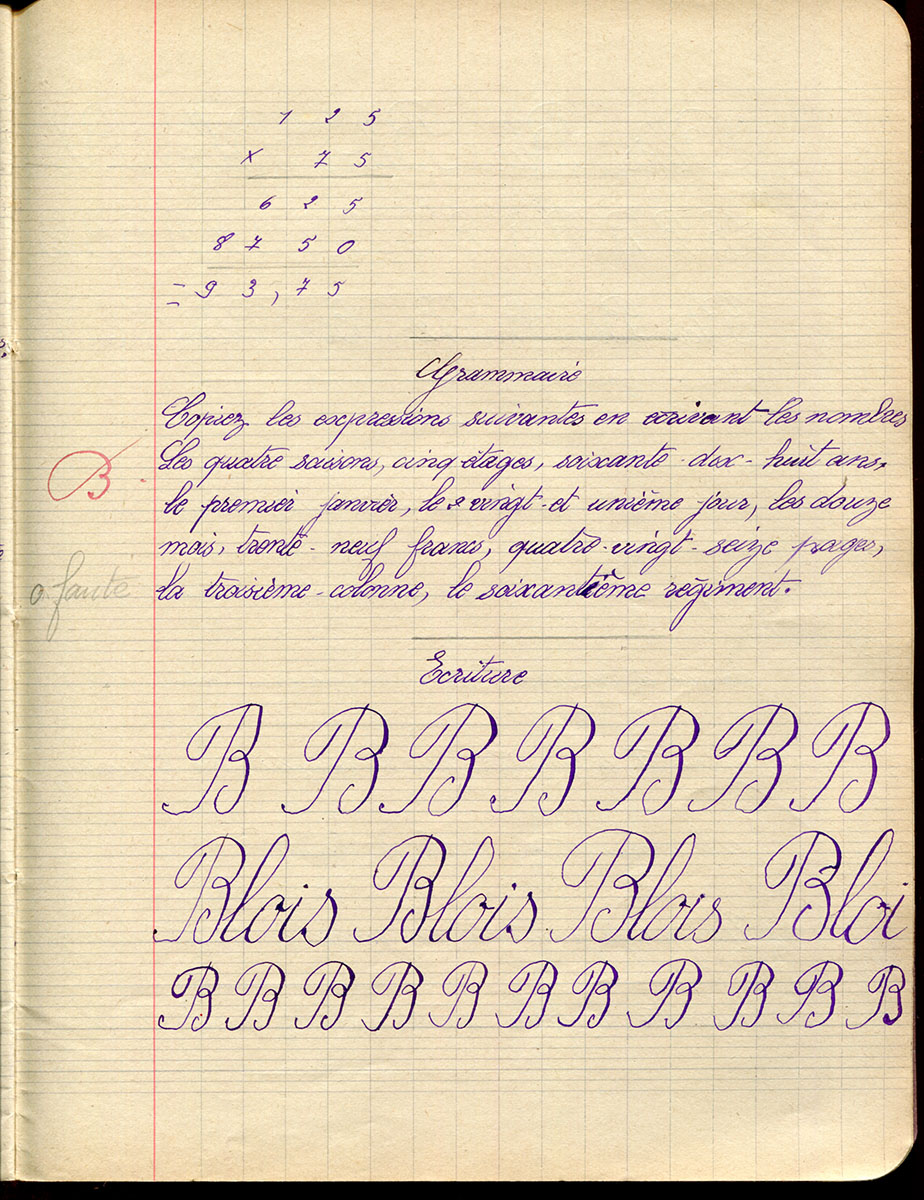 1 2 5
x 7 5
6 2 5
8 7 5 0
= 9 3, 7 5
Grammaire
Copiez les expressions suivantes en ecrivant les nombres
Les quatre saisons, cinq étages, soixante-dix-huit ans,
le premier janvier, le vingt-et unième jour, les douze
B
mois, trente-neuf francs, quatre-vingt-seize pages,
0 faute
la troisième-colonne, le soixantième régiment.
Ecriture
B B B B B B B
Blois Blois Blois Bloi
B B B B B B B B B B B